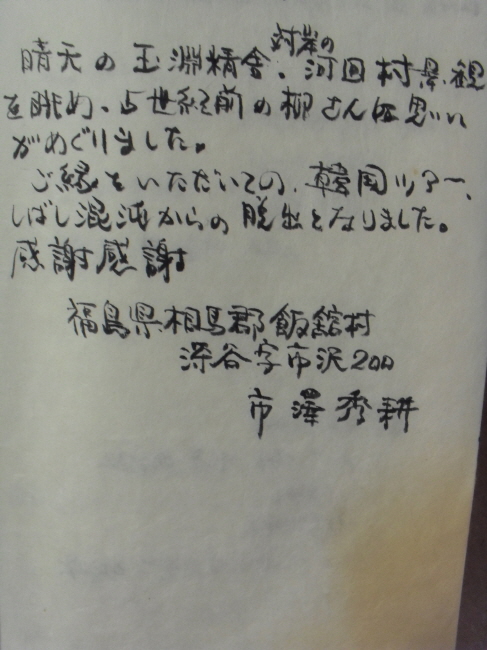 晴天の玉淵精舎、対岸の河回村景観
を眺め、5世紀前の柳さんに思い
がめぐりました。
ご縁をいただいての、韓国ツアー、
しばし混沌からの脱出となりました。
感謝感謝
福島県相馬郡飯舘村
深谷字市沢200
市澤秀耕